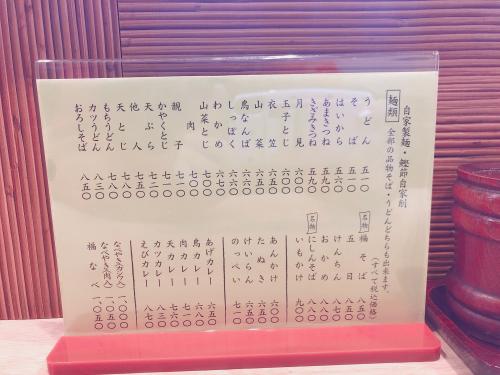 自家製麺・鰹節自家削
麺類 全部の品物そば・うどんどちらも出来ます。
(すべて税込価格)
うどん 五一〇
そば 五一〇
はいから
あまきつね 五九〇
きざみきつね 五九〇
月見
玉子とじ 六〇〇
衣笠 六五〇
山菜 六五〇
鳥なんば
しっぽく 六七〇
わかめ 六七〇
山菜とじ
肉
親子 七一〇
かやくとじ
天ぷら
他人 七五〇
天とじ
もちうどん
カツうどん
おろしそば 八五〇
名物 福そば 八五〇
五目 八五〇
けんちん
おかめ 八八〇
名物 にしんそば 八八〇
いもかけ 九〇〇
あんかけ 六〇〇
たぬき 六五〇
けいらん 六五〇
のっぺい 七一〇
あげカレー 六五〇
鳥カレー 六八〇
肉カレー
天カレー 七六〇
カツカレー 八三〇
えびカレー 八七〇
なべやき 一、〇〇〇
なべやき(肉入) 一、〇五〇
福なべ 一、〇五〇